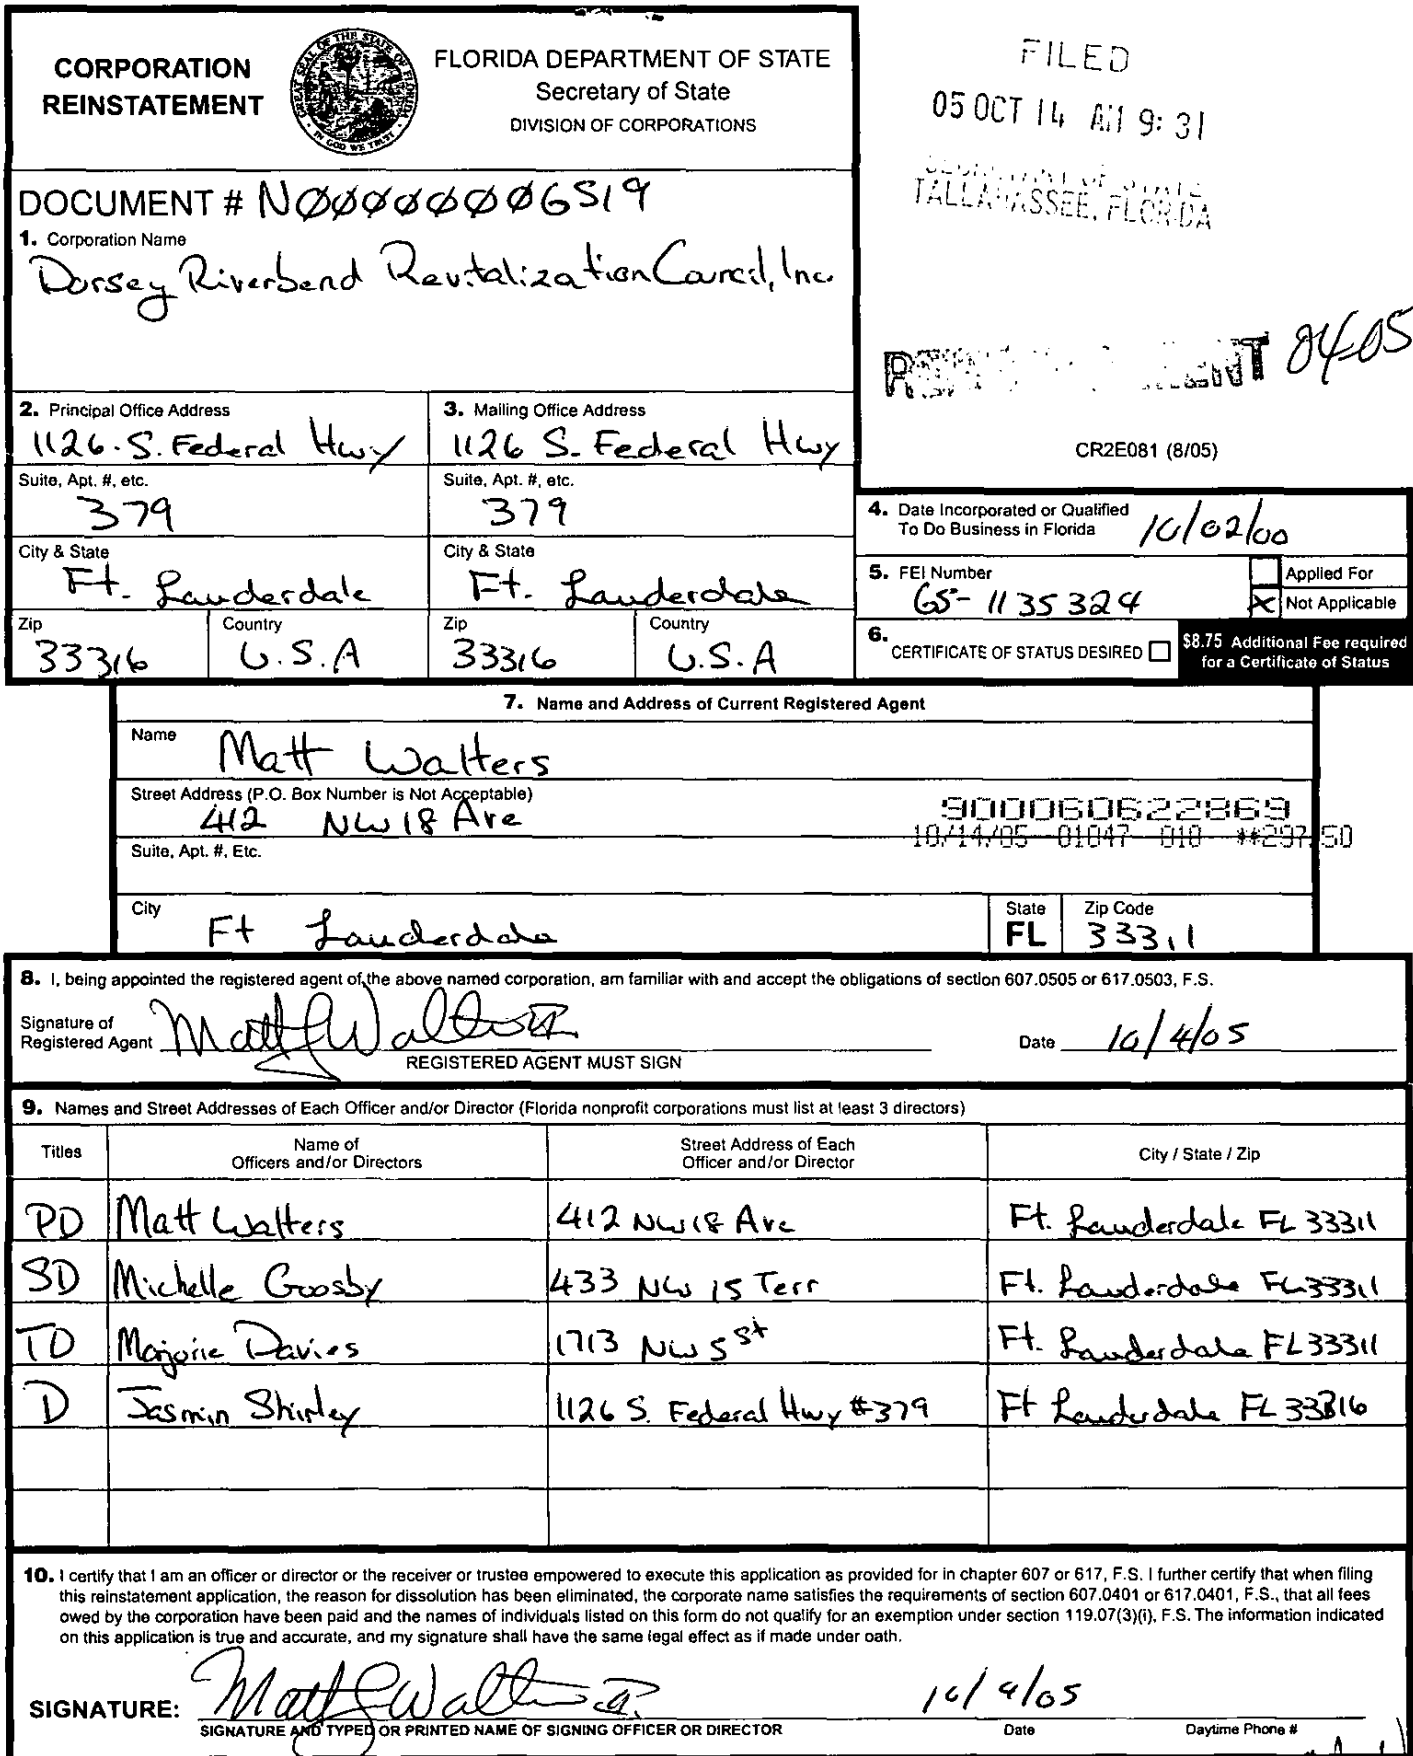 CORPORATION
REINSTATEMENT
GREAT SEAL OF THE STATE OF FLORIDA
IN GOD WE TRUST
FLORIDA DEPARTMENT OF STATE
Secretary of State
DIVISION OF CORPORATIONS
FILED
05 OCT 14 AM 9:31
SECRETARY OF STATE
TALLAHASSEE, FLORIDA
DOCUMENT # N00000006519
1. Corporation Name
Dorsey Riverbend Revitalization Council, Inc.
REINSTATEMENT 04-05
CR2E081 (8/05)
2. Principal Office Address
1126 S. Federal Hwy
3. Mailing Office Address
1126 S. Federal Hwy
Suite, Apt. #, etc.
379
Suite, Apt. #, etc.
379
City & State
Ft. Lauderdale
City & State
Ft. Lauderdale
Zip
33316
Country
U.S.A
Zip
33316
Country
U.S.A
4. Date Incorporated or Qualified
To Do Business in Florida 10/02/00
5. FEI Number
65-1135324
Applied For
Not Applicable
6. CERTIFICATE OF STATUS DESIRED
$8.75 Additional Fee required
for a Certificate of Status
7. Name and Address of Current Registered Agent
Name Matt Walters
Street Address (P.O. Box Number is Not Acceptable)
412 NW 18 Ave
900060622869
10/14/05 01047 010 **297.50
Suite, Apt. #, Etc.
City Ft Lauderdale
State
FL
Zip Code
33311
8. I, being appointed the registered agent of the above named corporation, am familiar with and accept the obligations of section 607.0505 or 617.0503, F.S.
Signature of
Registered Agent Matt J Walters Jr.
Date 10/4/05
REGISTERED AGENT MUST SIGN
9. Names and Street Addresses of Each Officer and/or Director (Florida nonprofit corporations must list at least 3 directors)
Titles
Name of
Officers and/or Directors
Street Address of Each
Officer and/or Director
City / State / Zip
PD Matt Walters 412 NW 18 Ave Ft. Lauderdale FL 33311
SD Michelle Goosby 433 NW 15 Terr Ft. Lauderdale FL 33311
TD Marjorie Davies 1713 NW 5 St Ft. Lauderdale FL 33311
D Jasmin Shirley 1126 S. Federal Hwy #379 Ft Lauderdale FL 33316
10. I certify that I am an officer or director or the receiver or trustee empowered to execute this application as provided for in chapter 607 or 617, F.S. I further certify that when filing
this reinstatement application, the reason for dissolution has been eliminated, the corporate name satisfies the requirements of section 607.0401 or 617.0401, F.S., that all fees
owed by the corporation have been paid and the names of individuals listed on this form do not qualify for an exemption under section 119.07(3)(i), F.S. The information indicated
on this application is true and accurate, and my signature shall have the same legal effect as if made under oath.
SIGNATURE: Matt J Walters Jr. 10/4/05
SIGNATURE AND TYPED OR PRINTED NAME OF SIGNING OFFICER OR DIRECTOR
Date
Daytime Phone #